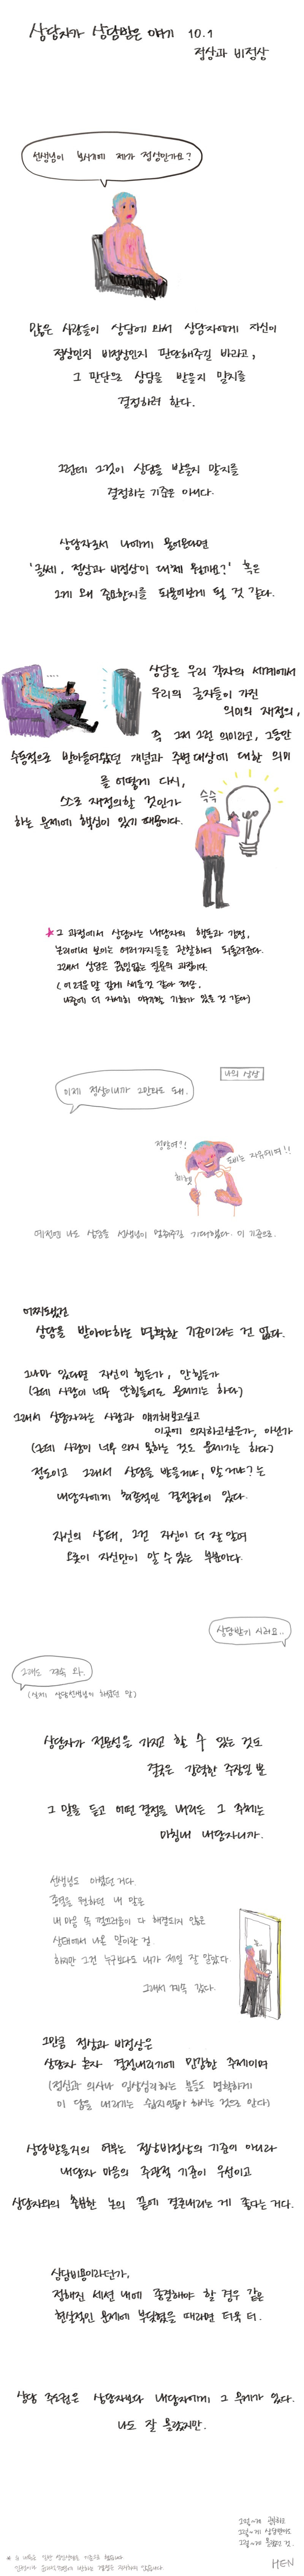 상담자가 상담받은 얘기 10.1
정상과 비정상
선생님이 보시기에 제가 정상인가요?
많은 사람들이 상담에 와서 상담자에게 자신이
정상인지 비정상인지 판단해주길 바라고,
그 판단으로 상담을 받을지 말지를
결정하려 한다.
그런데 그것이 상담을 받을지 말지를
결정하는 기준은 아니다.
상담자로서 나에게 물어온다면
'글쎄, 정상과 비정상이 대체 뭘까요?' 혹은
그게 왜 중요한지를 되물어보게 될 것 같다.
상담은 우리 각자의 세계에서
우리의 글자들이 가진
의미의 재정의,
즉 그저 그런 의미라고, 그동안
수동적으로 받아들여왔던 개념과 주변 대상에 대한 의미
를 어떻게 다시,
스스로 재정의할 것인가
하는 문제에 핵심이 있기 때문이다.
슥슥
★ 그 과정에서 상담자는 내담자의 행동과 감정,
논리에서 보이는 여러가지들을 관찰하여 되돌려준다.
그래서 상담은 끊임없는 질문의 과정이다.
(어려운 말 같게 써놓은 것 같아 죄송.
나중에 더 자세히 얘기할 기회가 있을 것 같아)
나의 상상
이제 정상이니까 그만와도 돼.
정말여?!
도비는 자유예여!!
예전엔 나도 상담을 선생님이 멈춰주길 기대했다. 이 기준으로.
어찌됐건
상담을 받아야하는 명확한 기준이라는 건 없다.
그나마 있다면 자신이 힘든가, 안힘든가
(근데 사람이 너무 안힘들어도 문제기는 하다)
그래서 상담자라는 사람과 얘기해보고싶고
이곳에 의지하고싶은가, 아닌가
(근데 사람이 너무 의지 못하는 것도 문제기는 하다)
정도이고 그래서 상담을 받을거냐, 말거냐?는
내담자에게 최종적인 결정권이 있다.
자신의 상태, 그건 자신이 더 잘 알며
오롯이 자신만이 알 수 있는 부분이다.
상담받기 시러요..
그래도 계속 와.
(실제 상담선생님이 하셨던 말)
상담자가 전문성을 가지고 할 수 있는 것도
결국은 강력한 주장일 뿐
그 말을 듣고 어떤 결정을 내리는 그 주체는
마침내 내담자니까.
선생님도 아셨던 거다.
종결을 원하던 내 말은
내 마음 속 껄끄러움이 다 해결되지 않은
상태에서 나온 말이란 걸.
하지만 그건 누구보다도 내가 제일 잘 알았다.
그래서 계속 갔다.
그만큼 정상과 비정상은
상담자 혼자 결정내리기에 민감한 주제이며
(정신과 의사나 임상심리하는 분들도 명확하게
이 답을 내리기는 쉽지 않을 것으로 안다)
상담받을지의 여부는 정상비정상의 기준이 아니라
내담자 마음의 주관적 기준이 우선이고
상담자와의 충분한 논의 끝에 결론내리는 게 좋다는 거다.
상담비용이라던가,
정해진 세션 내에 종결해야 할 경우 같은
현실적인 문제에 부딪혔을 때라면 더욱 더.
상담 주도권은 상담자보다 내담자에게 그 무게가 있다.
나도 잘 몰랐지만.
HEN